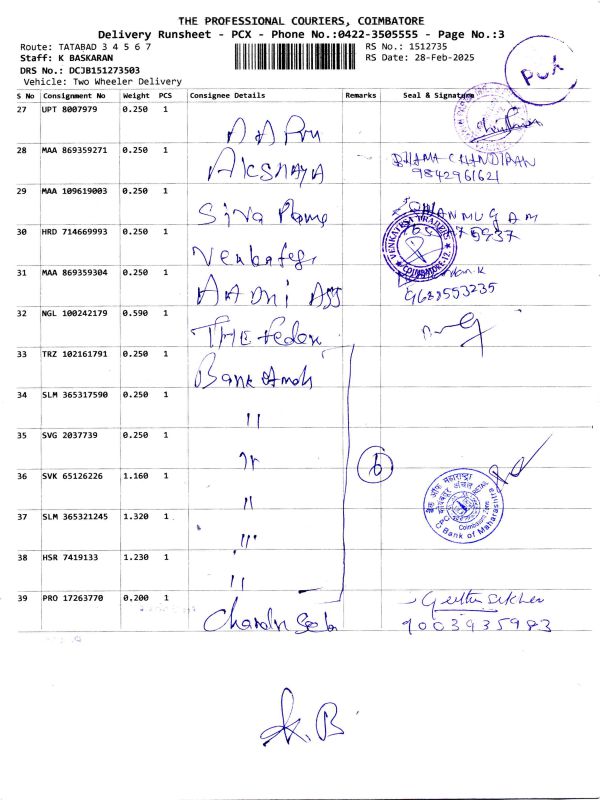 THE PROFESSIONAL COURIERS, COIMBATORE
Delivery Runsheet - PCX - Phone No.:0422-3505555 - Page No.:3
Route: TATABAD 3 4 5 6 7
RS No.: 1512735
Staff: K BASKARAN
RS Date: 28-Feb-2025
DRS No.: DCJB151273503
Vehicle: Two Wheeler Delivery
S No Consignment No Weight PCS Consignee Details Remarks Seal & Signature
27 UPT 8007979 0.250 1
28 MAA 869359271 0.250 1 AKSHAYA
9842961621
29 MAA 109619003 0.250 1 Siva
SHANMUGAM
30 HRD 714669993 0.250 1 Venkates
VENKATESA TRADERS
COIMBATORE-12
31 MAA 869359304 0.250 1 AADHI ASS
9688553235
32 NGL 100242179 0.590 1 THE Feder
33 TRZ 102161791 0.250 1 Bank of mah
34 SLM 365317590 0.250 1 "
35 SVG 2037739 0.250 1 "
36 SVK 65126226 1.160 1 "
6
बैंक ऑफ महाराष्ट्र
Bank of Maharashtra
Coimbatore Zone
37 SLM 365321245 1.320 1 "
38 HSR 7419133 1.230 1 "
39 PRO 17263770 0.200 1 Chandra
9003935983
K. B